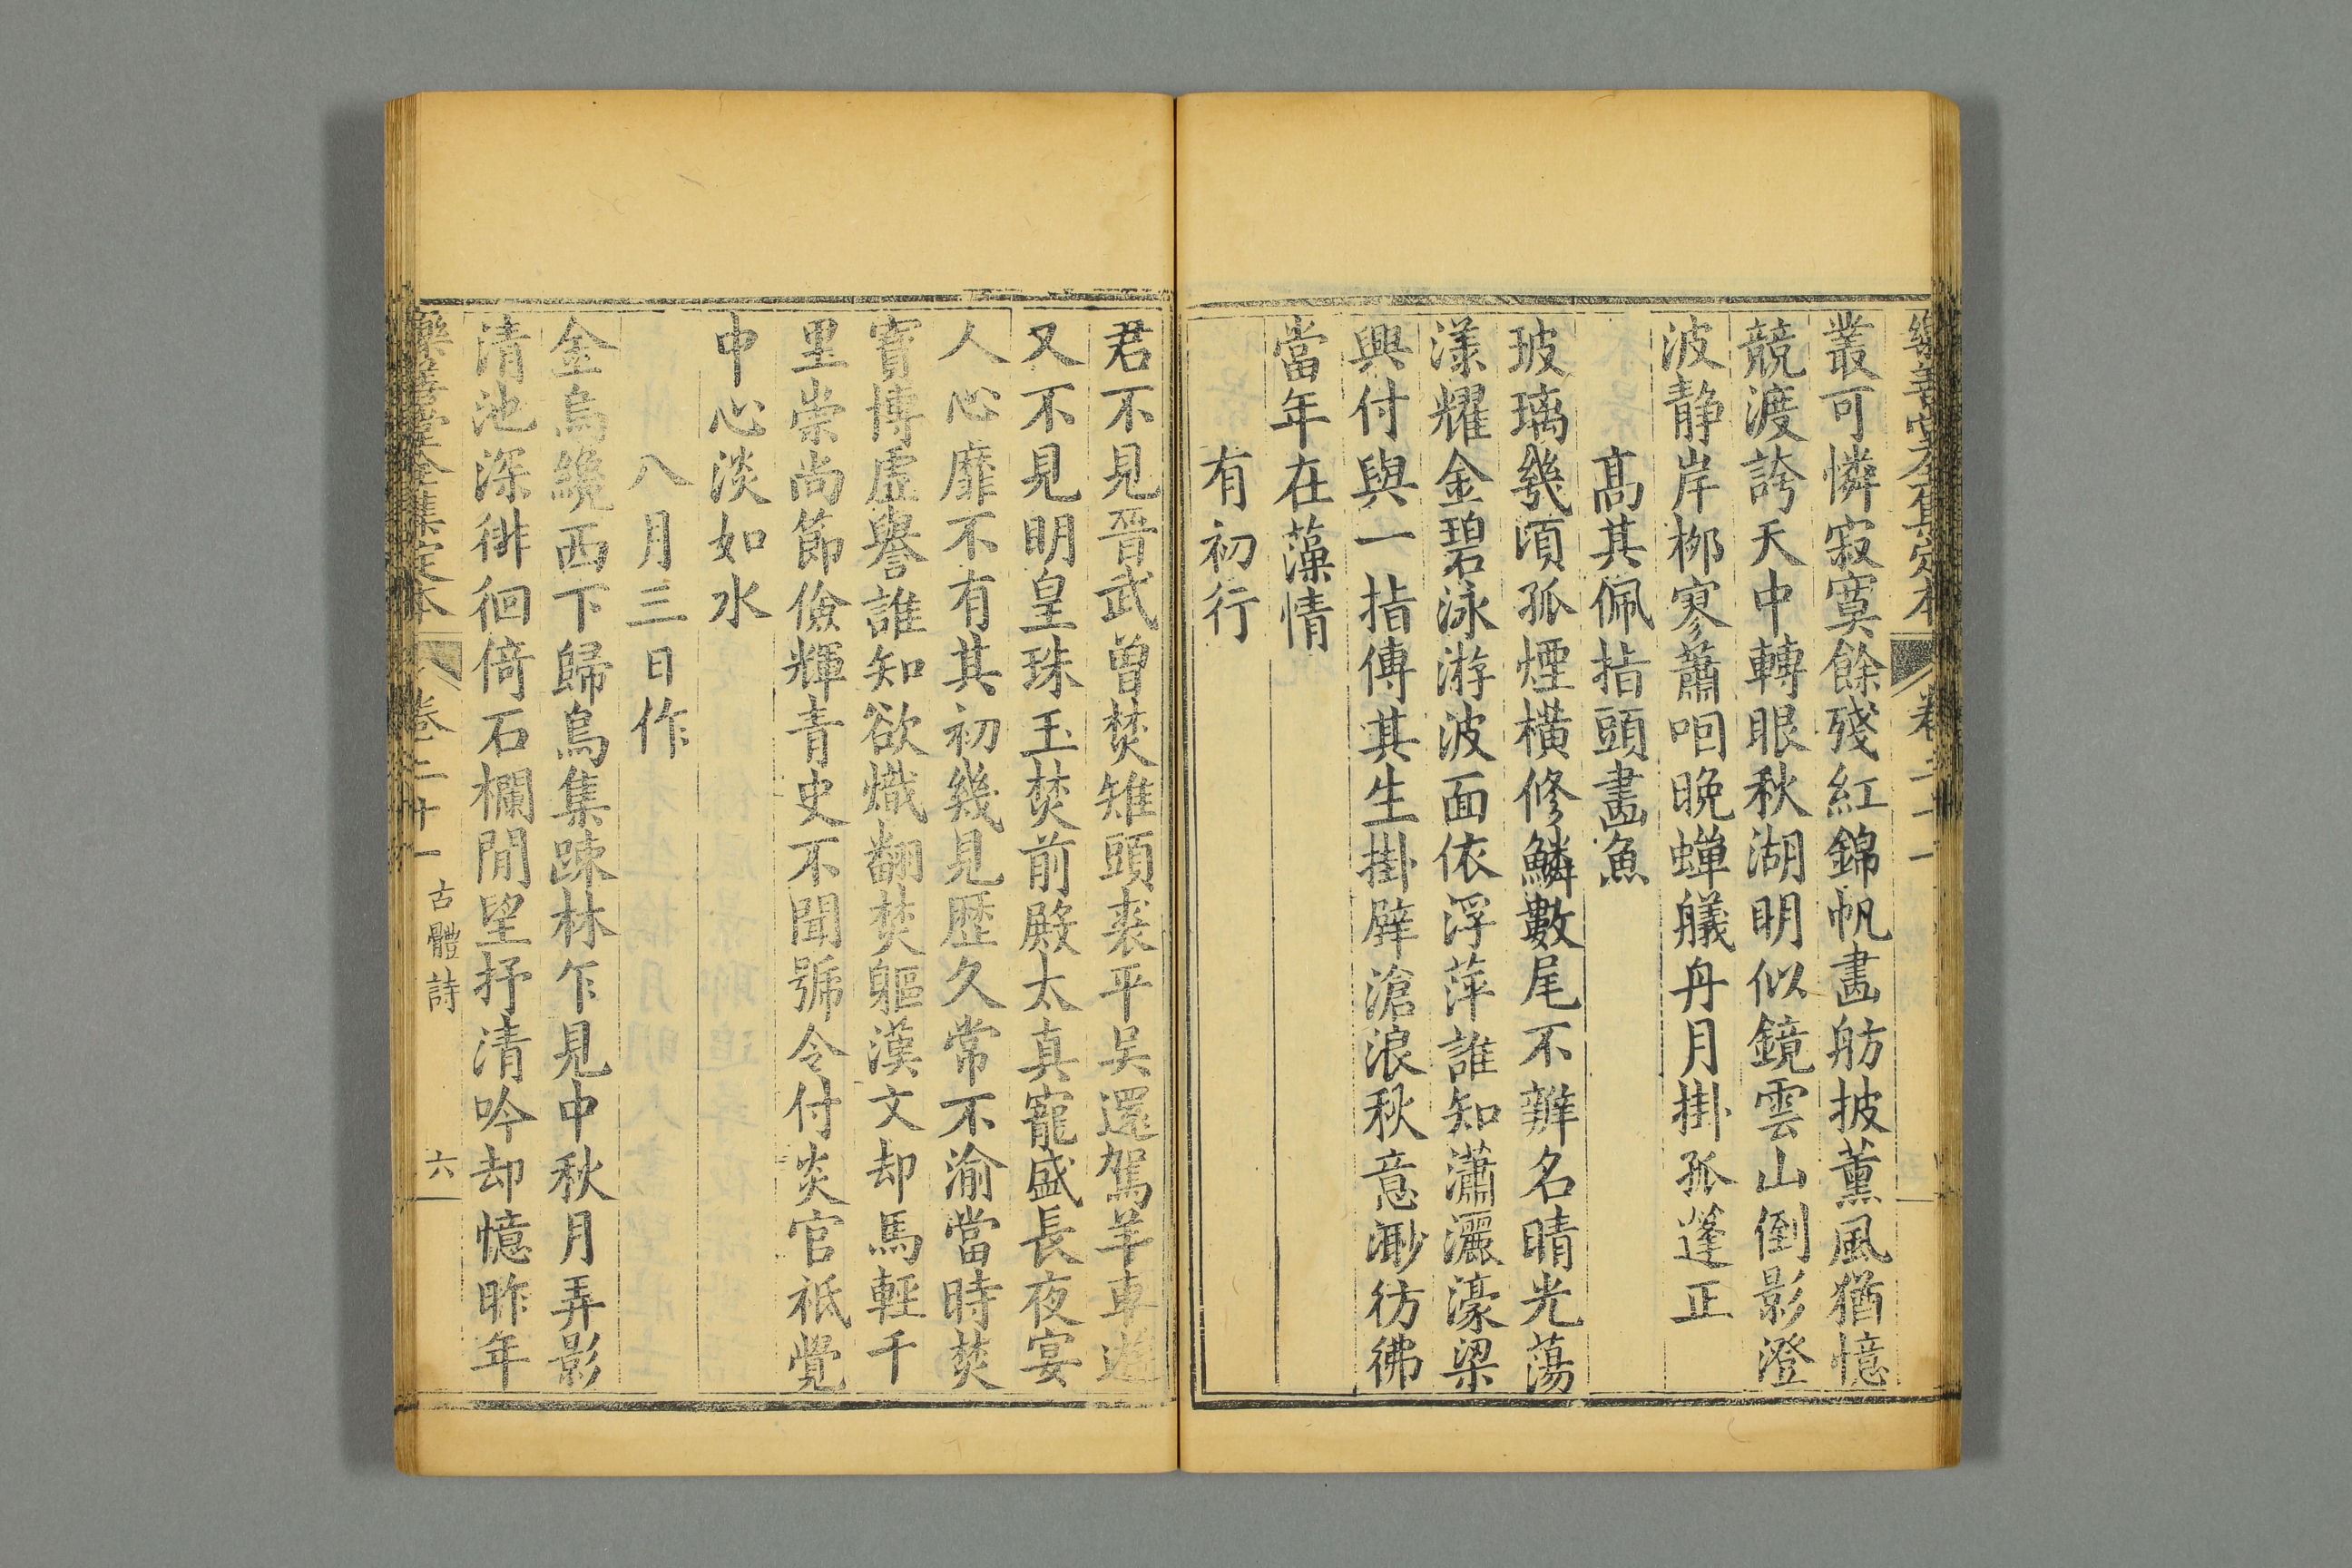 樂善堂全集定本 卷二十一
叢可憐寂寞餘殘紅錦帆畵舫披薰風猶憶
競渡誇天中轉眼秋湖明似鏡雲山倒影澄
波静岸栁寥蕭咽晚蟬艤舟月掛孤蓬正
髙其佩指頭畵魚
玻璃幾頃孤煙橫修鱗數尾不辨名晴光蕩
漾耀金碧泳游波面依浮萍誰知瀟灑濠梁
興付與一指傳其生掛壁滄浪秋意渺彷彿
當年在藻情
有初行
君不見晉武曾焚雉頭裘平吳還駕羊車遊
又不見明皇珠玉焚前殿太真寵盛長夜宴
人心靡不有其初幾見歷久常不渝當時焚
寶博虛譽誰知欲熾翻焚軀漢文却馬輕千
里崇尚節儉輝青史不聞號令付炎官祇覺
中心淡如水
八月三日作
金烏纔西下歸鳥集踈林乍見中秋月弄影
清池深徘徊倚石欄閒望抒清吟却憶昨年
樂善堂全集定本 卷二十一 古體詩 六